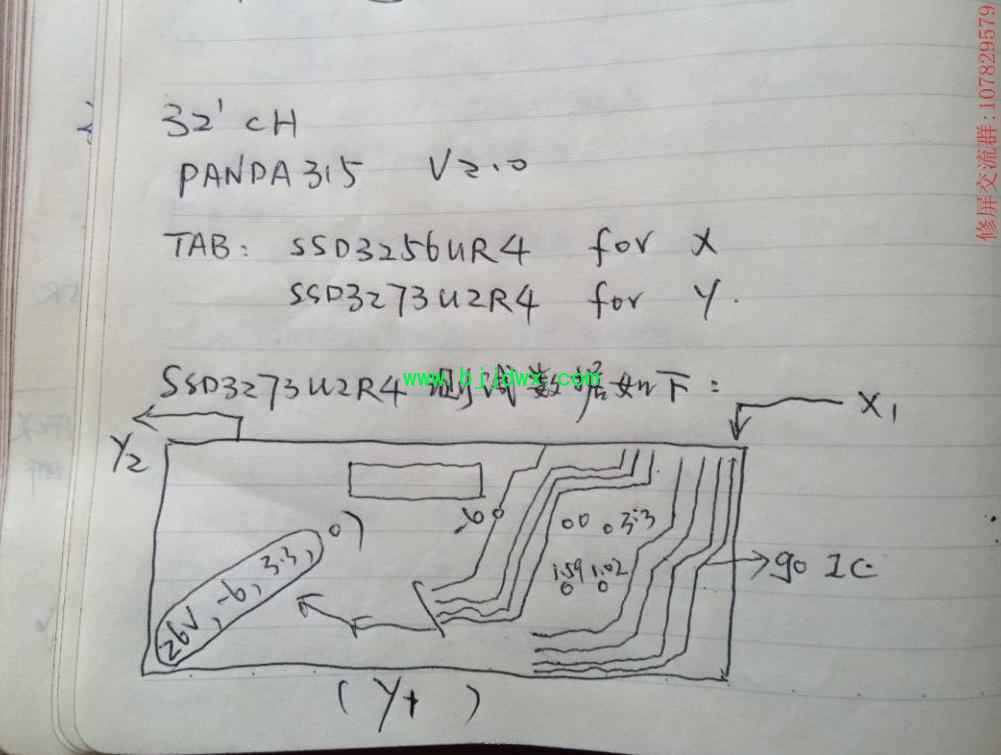 修屏交流群: 107829579
32' CH
PANDA315 V2.0
TAB: SSD3256UR4 for X
SSD3273U2R4 for Y.
SSD3273U2R4 测试数据如下:
www.bjjdwx.com
X1
Y2
-6
0 3.3
1.59 1.02
go IC
26V, -6, 3.3, 0)
(Y1)